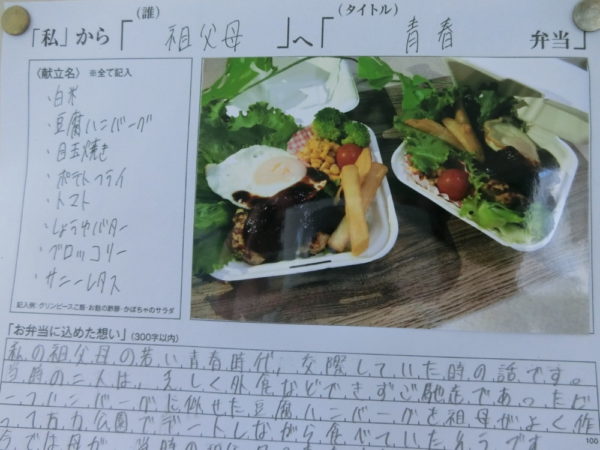 (誰) (タイトル)
「私」から「 祖父母 」へ「 青春 弁当」
〈献立名〉 ※全て記入
・白米
・豆腐ハンバーグ
・目玉焼き
・ポテトフライ
・トマト
・しょうゆバター
・ブロッコリー
・サニーレタス
記入例:グリンピースご飯・お麩の酢豚・かぼちゃのサラダ
「お弁当に込めた想い」(300字以内)
私の祖父母の若い青春時代、交際していた時の話です。
当時の二人は、乏しく外食などできずご馳走であったビ
ーフハンバーグに似せた豆腐ハンバーグを祖母がよく作
って方力公園でデートしながら食べていたそうです
100
では母が、当時の